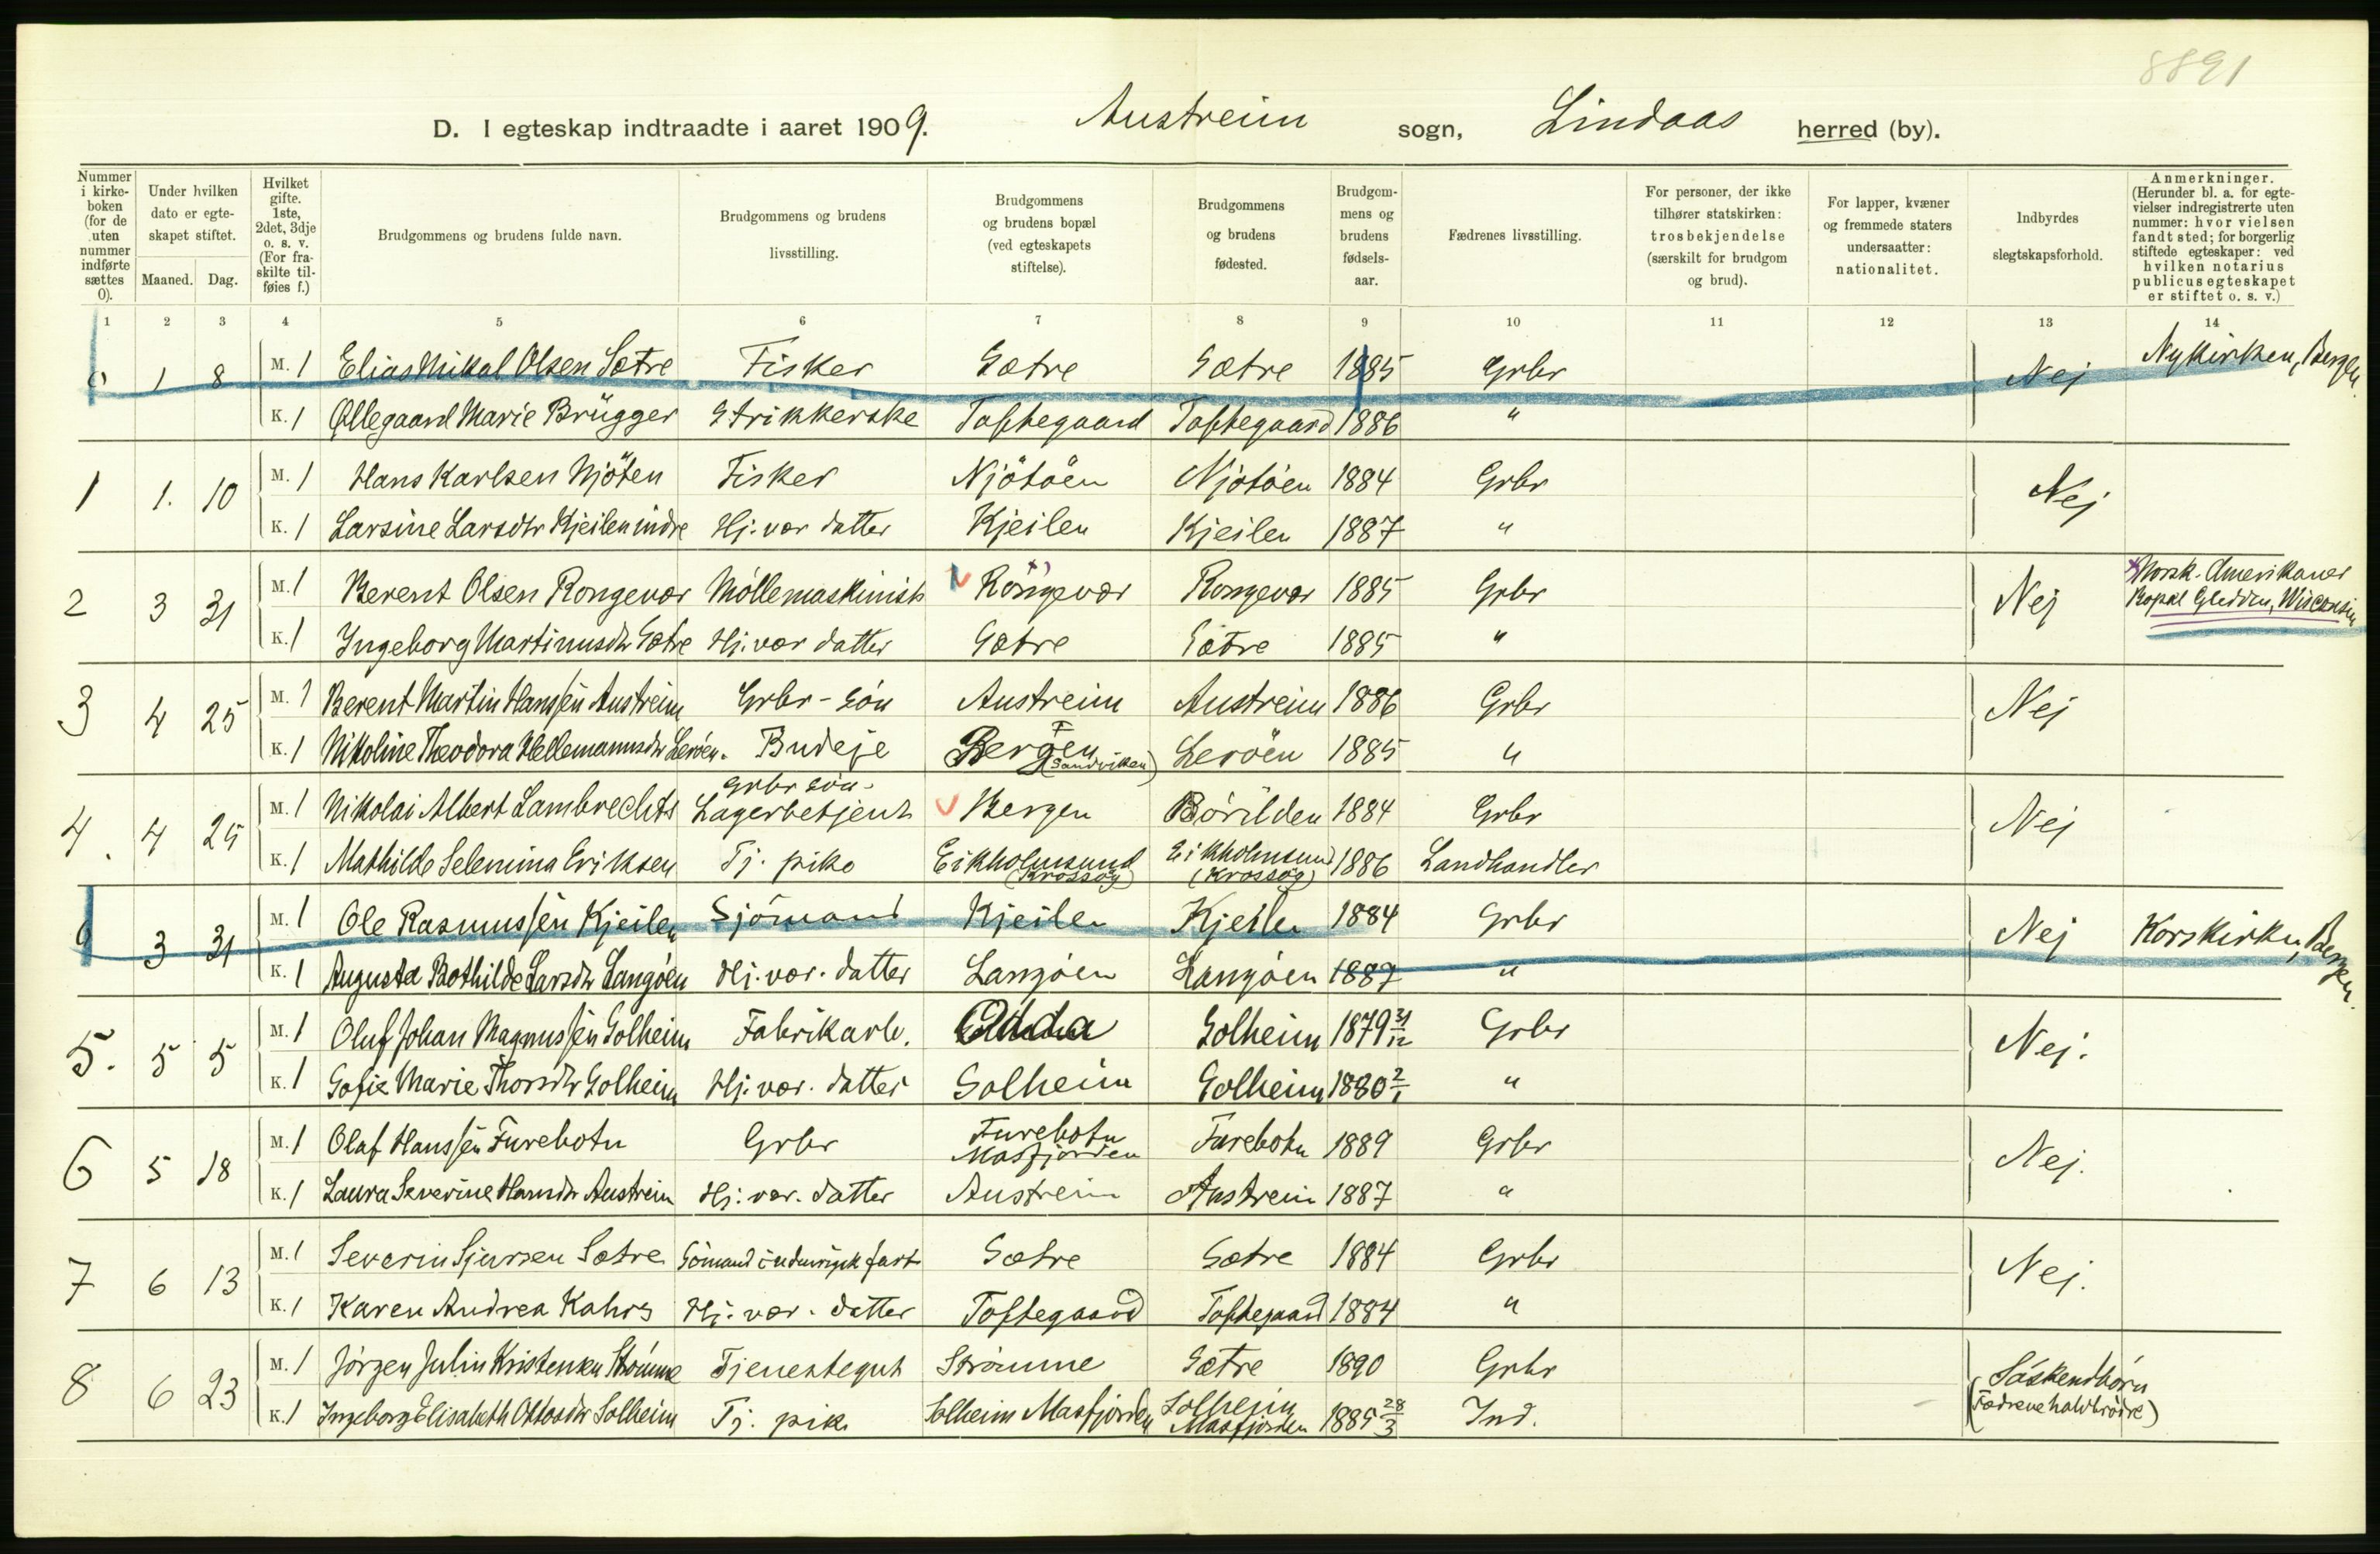 8891
D. I egteskap indtraadte i aaret 1909. Austreim sogn, Lindaas herred (by).
Nummer i kirkeboken (for de uten nummer indførte sættes 0). Under hvilken dato er egteskapet stiftet. Maaned. Dag. Hvilket gifte. 1ste, 2det, 3dje o. s. v. (For fraskilte tilføies f.) Brudgommens og brudens fulde navn. Brudgommens og brudens livsstilling. Brudgommens og brudens bopæl (ved egteskapets stiftelse). Brudgommens og brudens fødested. Brudgommens og brudens fødselsaar. Fædrenes livsstilling. For personer, der ikke tilhører statskirken: trosbekjendelse (særskilt for brudgom og brud). For lapper, kvæner og fremmede staters undersaatter: nationalitet. Indbyrdes slegtskapsforhold. Anmerkninger. (Herunder bl. a. for egtevielser indregistrerte uten nummer: hvor vielsen fandt sted; for borgerlig stiftede egteskaper: ved hvilken notarius publicus egteskapet er stiftet o. s. v.)
1 2 3 4 5 6 7 8 9 10 11 12 13 14
0 1 8 M. 1 Elias Mikal Olsen Sætre Fisker Sætre Sætre 1885 Grbr Nej Nykirken, Bergen.
K. 1 Øllegaard Marie Brügger Strikkerske Toftegaard Toftegaard 1886 "
1 1. 10 M. 1 Hans Karlsen Njöten Fisker Njötöen Njötöen 1884 Grbr Nej
K. 1 Larsine Larsdtr Kjeilen indre Hj. vær datter Kjeilen Kjeilen 1887 "
2 3 31 M. 1 Berent Olsen Rongevær Möllemaskinist Rongevær x) Rongevær 1885 Grbr Nej x Norsk-Amerikaner Bopæl Glidden, Wisconsin
K. 1 Ingeborg Martinusdtr Sætre Hj. vær datter Sætre Sætre 1885 "
3 4 25 M. 1 Berent Martin Hanssen Austreim Grbr-sön Austreim Austreim 1886 Grbr Nej
K. 1 Nikoline Theodora Hellemannsdtr Leröen. Budeje Bergen (Sandviken) Leröen 1885 "
4. 4 25 M. 1 Nikolai Albert Lambrechts Grbr sön - Lagerbetjent Bergen Börilden 1884 Grbr Nej
K. 1 Mathilde Selemina Eriksen Tj. pike Eikholmsund (Krossög) Eikholmsund (Krossög) 1886 Landhandler
0 3 31 M. 1 Ole Rasmussen Kjeilen Sjömand Kjeilen Kjeilen 1884 Grbr Nej Korskirken, Bergen.
K. 1 Augusta Bothilde Larsdtr Langöen Hj. vær. datter Langöen Langöen 1887 "
5. 5 5 M. 1 Oluf Johan Magnussen Solheim Fabrikarb. Odda Solheim 1879 31/12 Grbr Nej.
K. 1 Sofie Marie Thorsdtr Solheim Hj. vær. datter Solheim Solheim 1880 2/1 "
6 5 18 M. 1 Olaf Hanssen Furebotn Grbr Furebotn Masfjorden Furebotn 1889 Grbr Nej.
K. 1 Laura Severine Hansdtr Austreim Hj. vær. datter Austreim Austreim 1887 "
7 6 13 M. 1 Severin Sjursen Sætre Sömand i udenrigsk fart Sætre Sætre 1884 Grbr Nej.
K. 1 Karen Andrea Kahrs Hj. vær. datter Toftegaard Toftegaard 1884 "
8 6 23 M. 1 Jörgen Julin Kristensen Strömme Tjenestegut Strömme Sætre 1890 Grbr Söskendbörn (Fædrene halvbrödre)
K. 1 Ingeborg Elisabeth Ottosdtr Solheim Tj. pike Solheim Masfjorden Solheim Masfjorden 1885 28/3 Ind.